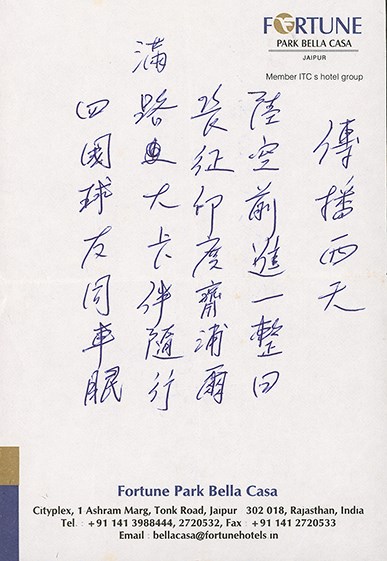 FORTUNE
PARK BELLA CASA
JAIPUR
Member ITC s hotel group
傳播西天
陸空前進一整日
長征印度齋浦爾
滿路大卡伴隨行
四國球友同車眠
Fortune Park Bella Casa
Cityplex, 1 Ashram Marg, Tonk Road, Jaipur 302 018, Rajasthan, India
Tel. : +91 141 3988444, 2720532, Fax : +91 141 2720533
Email : bellacasa@fortunehotels.in